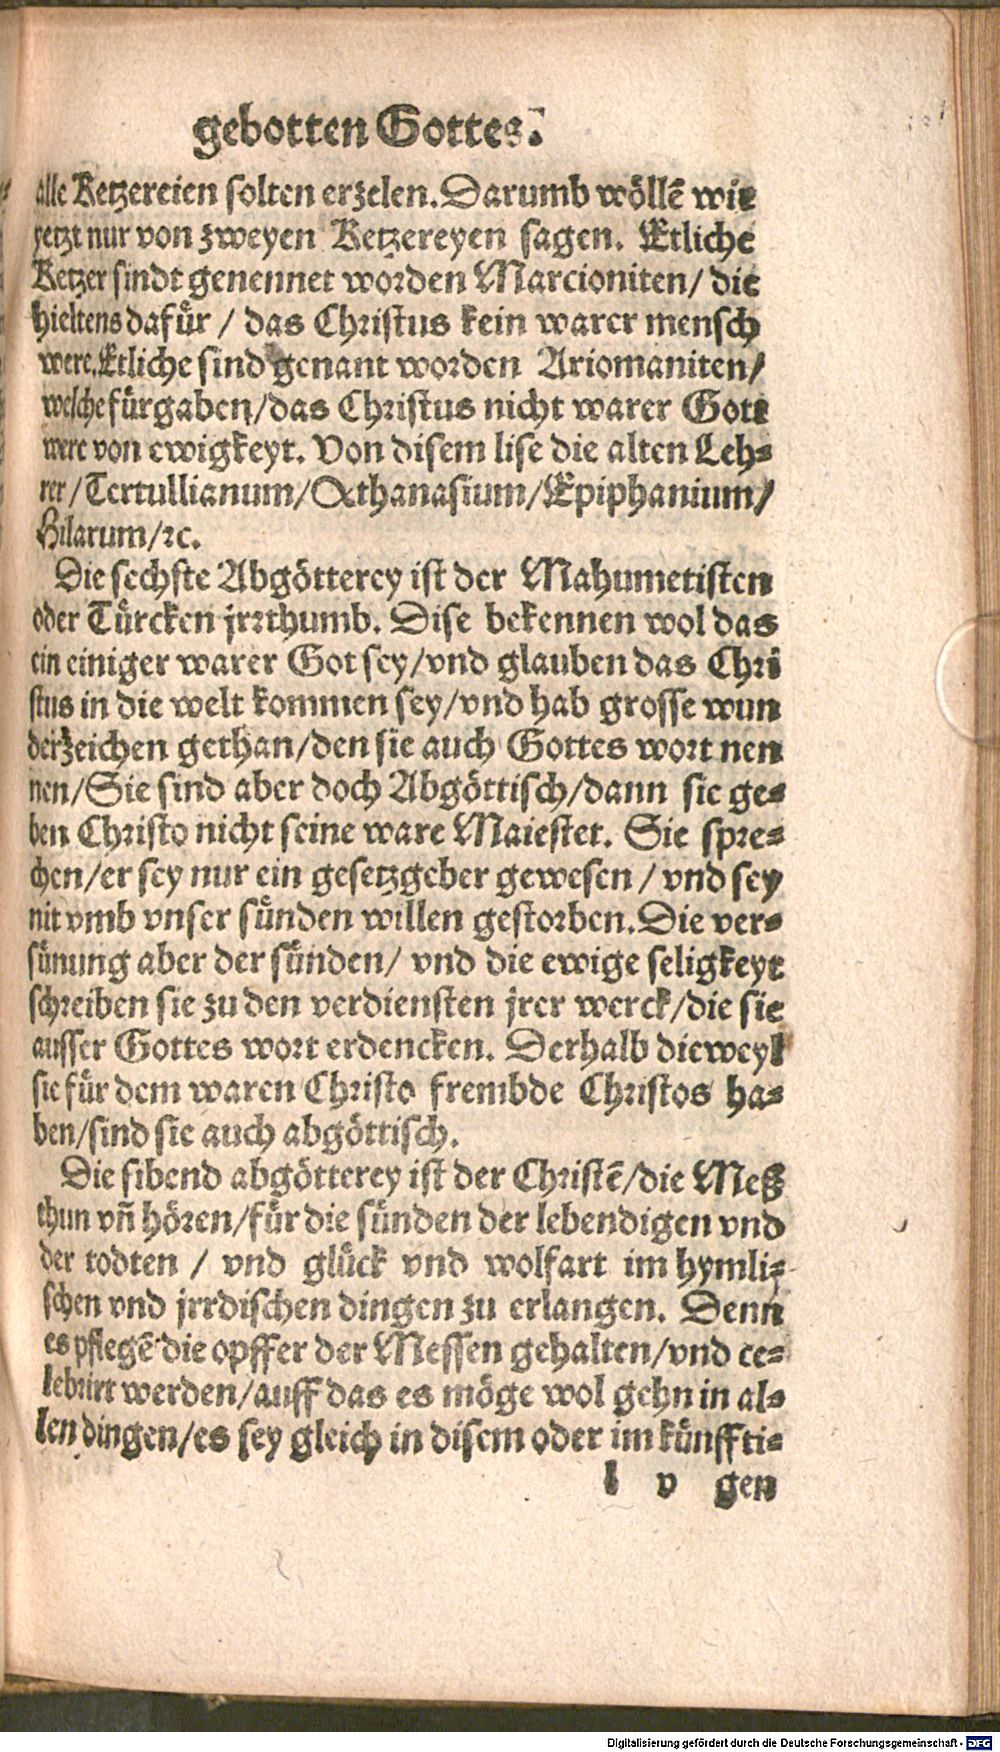 gebotten Gottes.
alle Ketzereien solten erzelen. Darumb wöllẽ wir
yetzt nur von zweyen Ketzereyen sagen. Etliche
Ketzer sindt genennet worden Marcioniten/ die
hieltens dafür / das Christus kein warer mensch
were. Etliche sind genant worden Ariomaniten/
welche fürgaben/das Christus nicht warer Gott
were von ewigkeyt. Von disem lise die alten Leh-
rer/Tertullianum/Athanasium/Epiphanium/
Hilarum/ꝛc.
Die sechste Abgötterey ist der Mahumetisten
oder Türcken jrrthumb. Dise bekennen wol das
ein einiger warer Got sey/vnd glauben das Chri
stus in die welt kommen sey/vnd hab grosse wun
derzeichen gethan/den sie auch Gottes wort nen
nen/Sie sind aber doch Abgöttisch/dann sie ge-
ben Christo nicht seine ware Maiestet. Sie spre-
chen/er sey nur ein gesetzgeber gewesen / vnd sey
nit vmb vnser sünden willen gestorben. Die ver-
sünung aber der sünden/ vnd die ewige seligkeyt
schreiben sie zu den verdiensten jrer werck/die sie
ausser Gottes wort erdencken. Derhalb dieweyl
sie für dem waren Christo frembde Christos ha-
ben/sind sie auch abgöttisch.
Die sibend abgötterey ist der Christẽ/die Meß
thun vñ hören/für die sünden der lebendigen vnd
der todten / vnd glück vnd wolfart im hymli-
schen vnd jrrdischen dingen zu erlangen. Denn
es pflegẽ die opffer der Messen gehalten/vnd ce-
lebrirt werden/auff das es möge wol gehn in al-
len dingen/es sey gleich in disem oder im künffti-
l v gen
Digitalisierung gefördert durch die Deutsche Forschungsgemeinschaft - DFG